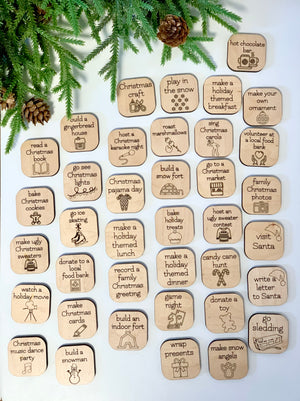 hot chocolate
bar
Christmas
craft
play in
the snow
make a
holiday
themed
breakfast
make your
own
ornament
build a
gingerbread
house
host a
Christmas
karaoke night
roast
marshmallows
sing
Christmas
carols
volunteer at
a local food
bank
read a
Christmas
book
go see
Christmas
lights
Christmas
pajama day
build a
snow fort
go to a
Christmas
market
family
Christmas
photos
bake
Christmas
cookies
go ice
skating
make a
holiday
themed
lunch
bake
holiday
treats
host an
ugly sweater
contest
visit
Santa
make ugly
Christmas
sweaters
donate to a
local
food bank
record a
family
Christmas
greeting
make a
holiday
themed
dinner
candy cane
hunt
write a
letter
to Santa
watch a
holiday movie
make
Christmas
cards
build an
indoor fort
game
night
donate a
toy
go
sledding
Christmas
music dance
party
build a
snowman
wrap
presents
make snow
angels